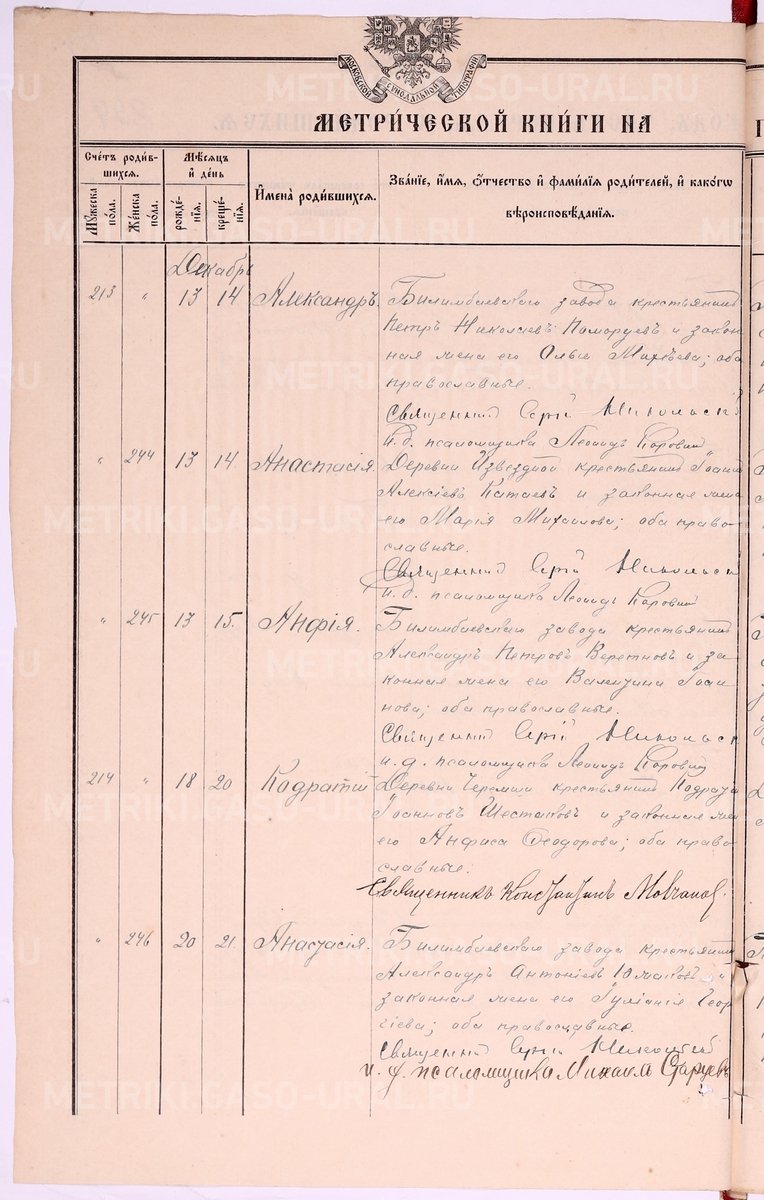 МОСКОВСКОЙ СѴНОДАЛЬНОЙ ТИПОГРАФІИ
МЕТРИ́ЧЕСКОЙ КНИ́ГИ НА
Сче́тъ роди́в-
шихся.
Мѣ́сяцъ
и҆ де́нь
И҆мена̀ роди́вшихся.
Зва́нїе, и҆́мя, ѻ҆́тчество и҆ фами́лїя роди́телей, и҆ како́гѡ
вѣроисповѣ́данїя.
Му́жеска по́ла.
Же́нска по́ла.
рожде́-нїя.
креще́-нїя.
Декабрь
213 " 13 14 Александръ. Билимбаевскаго завода крестьянинъ
Петръ Николаевъ и закон
ная жена его Ольга; оба
православные.
Священник Сергій Никольск
И. д. псаломщика Леонидъ Коровин
" 244 13 14. Анастасія. Деревни Извездной крестьянин Іоанн
Алексіевъ Катаевъ и законная жена
его Марія Михаилова; оба право-
славные.
Священник Сергій Никольск
И. д. псаломщика Леонидъ Коровин
" 245 13 15. Анфія. Билимбаевскаго завода крестьянин
Александръ Петровъ и за-
конная жена его Валентина Іоан
нова; оба православные.
Священник Сергій Никольск
и. д. псаломщика Леонидъ Коровин
214 " 18 20 Кодратій Деревни Черемши крестьянин Кодрат
Іоанновъ Шестаковъ и законная жен
его Анфиса Феодорова; оба право-
славные.
Священникъ Константинъ
" 246 20 21. Анастасія. Билимбаевскаго завода крестьянин
Александръ Антоніевъ Юмаковъ и
законная жена его Іуліанія Геор
гіева; оба православные.
Священник Сергій Никольскій
и. д. псаломщика Михаилъ Старцевъ
METRIKI.GASO-URAL.RU